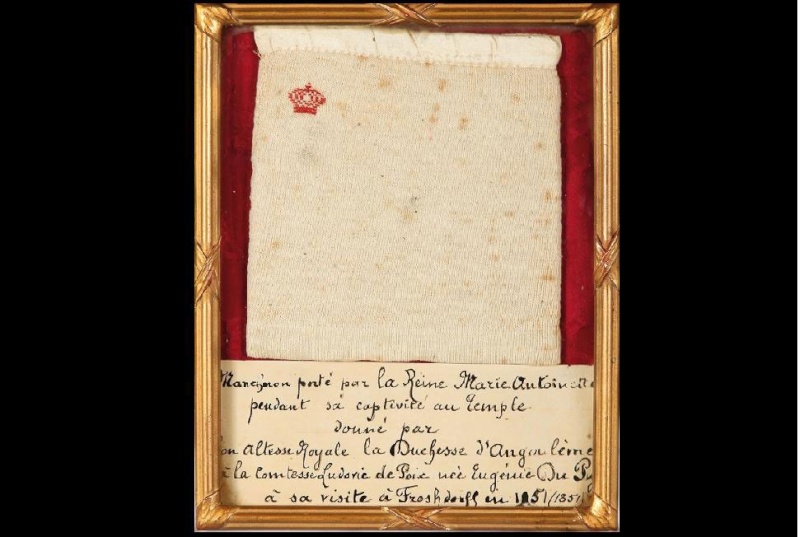 Mancheron porté par la Reine Marie Antoinette
pendant sa captivité au Temple
donné par
Son Altesse Royale la Duchesse d'Angoulème
à la Comtesse Ludovic de Poix née Eugénie Du
à sa visite à Froshdorff en 1851